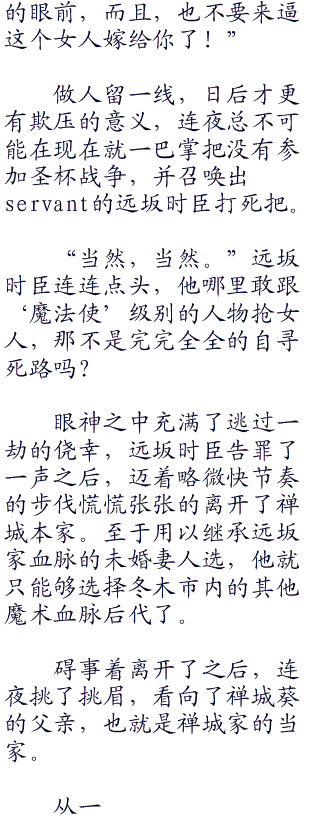 的眼前，而且，也不要来逼
这个女人嫁给你了！”
做人留一线，日后才更
有欺压的意义，连夜总不可
能在现在就一巴掌把没有参
加圣杯战争，并召唤出
servant的远坂时臣打死把。
“当然，当然。”远坂
时臣连连点头，他哪里敢跟
‘魔法使’级别的人物抢女
人，那不是完完全全的自寻
死路吗？
眼神之中充满了逃过一
劫的侥幸，远坂时臣告罪了
一声之后，迈着略微快节奏
的步伐慌慌张张的离开了禅
城本家。至于用以继承远坂
家血脉的未婚妻人选，他就
只能够选择冬木市内的其他
魔术血脉后代了。
碍事着离开了之后，连
夜挑了挑眉，看向了禅城葵
的父亲，也就是禅城家的当
家。
从一